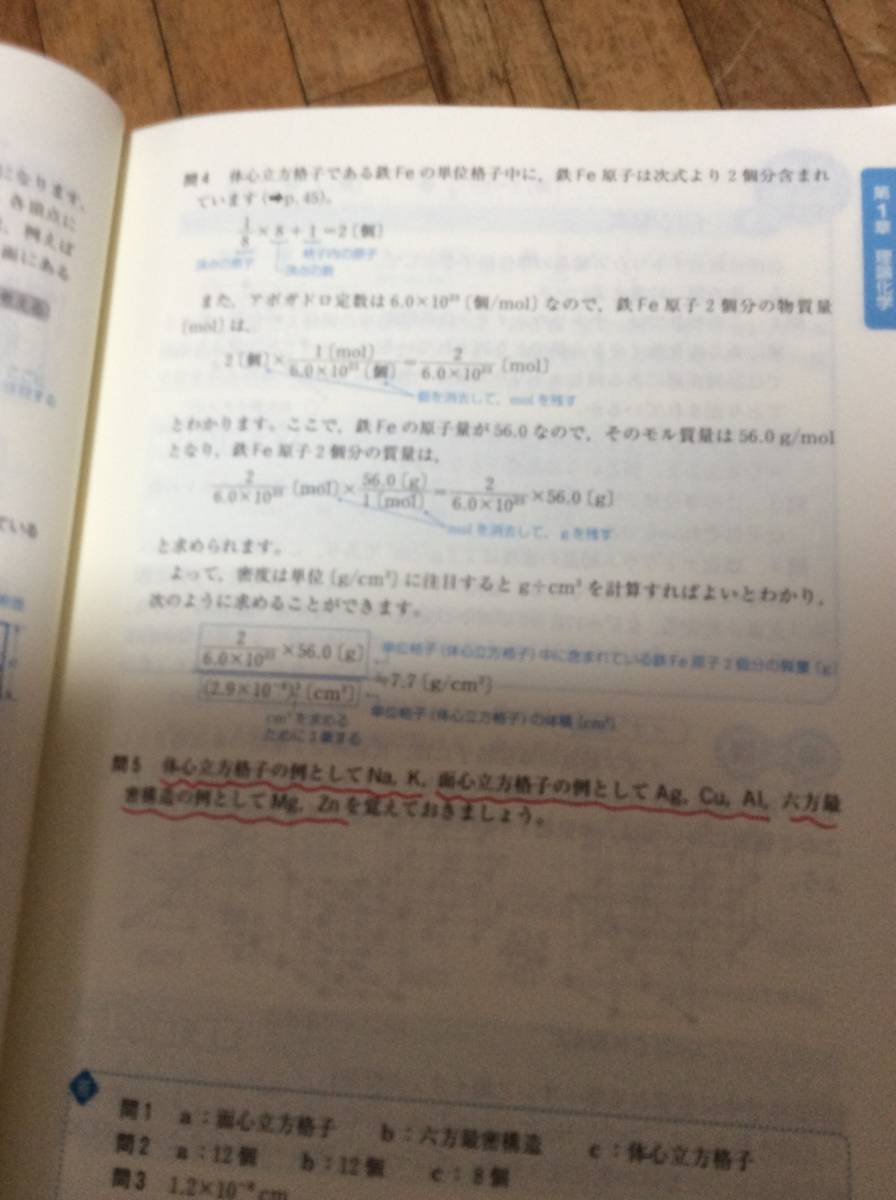 問4 体心立方格子である鉄Feの単位格子中に,鉄Fe原子は次式より2個分含まれ
ています(➡p.45)。
1/8 × 8 + 1 = 2〔個〕
頂点の原子 頂点の数 格子内の原子
また,アボガドロ定数は6.0×10²³〔個/mol〕なので,鉄Fe原子2個分の物質量
〔mol〕は,
2〔個〕× 1〔mol〕/6.0×10²³〔個〕 = 2/6.0×10²³〔mol〕
個を消去して,molを残す
とわかります。ここで,鉄Feの原子量が56.0なので,そのモル質量は56.0g/mol
となり,鉄Fe原子2個分の質量は,
2/6.0×10²³〔mol〕× 56.0〔g〕/1〔mol〕 = 2/6.0×10²³ ×56.0〔g〕
molを消去して,gを残す
と求められます。
よって,密度は単位〔g/cm³〕に注目するとg÷cm³を計算すればよいとわかり,
次のように求めることができます。
2/6.0×10²³ ×56.0〔g〕 単位格子(体心立方格子)中に含まれている鉄Fe原子2個分の質量〔g〕
(2.9×10⁻⁸)³〔cm³〕 ≒7.7〔g/cm³〕
単位格子(体心立方格子)の体積〔cm³〕
cm³を求める
ために3乗する
問5 体心立方格子の例としてNa, K, 面心立方格子の例としてAg, Cu, Al, 六方最
密構造の例としてMg, Znを覚えておきましょう。
第1章 理論化学
答
問1 a:面心立方格子 b:六方最密構造 c:体心立方格子
問2 a:12個 b:12個 c:8個
問3 1.2×10⁻⁸cm
になります。
各頂点に
例えば
面にある
考える
ている